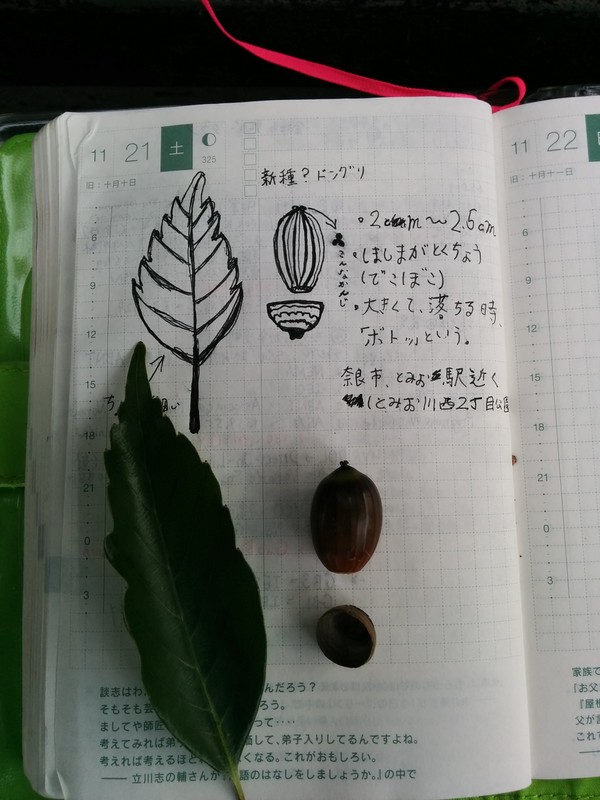 11 21 土 325
旧：十月十日
新種？ドングリ
・2cm～2.6cm
・しましまがとくちょう
（でこぼこ）
・大きくて、落ちる時、
「ボトッ」という。
こんなかんじ
奈良市、とみお駅近く
（とみお川西2丁目公園
6
9
12
15
18
21
0
3
談志はわ
んだろう？
そもそも芸
ろう。
ましてや師匠
って‥‥
考えてみれば弟
価して、弟子入りしてるんですよね。
考えれば考えるほど
くなる。これがおもしろい。
―― 立川志の輔さんが
語のはなしをしましょうか。』の中で
11 22
旧：十月十一日
6
9
12
15
18
21
0
3
家族で
『お父
『屋根
父が言
これで